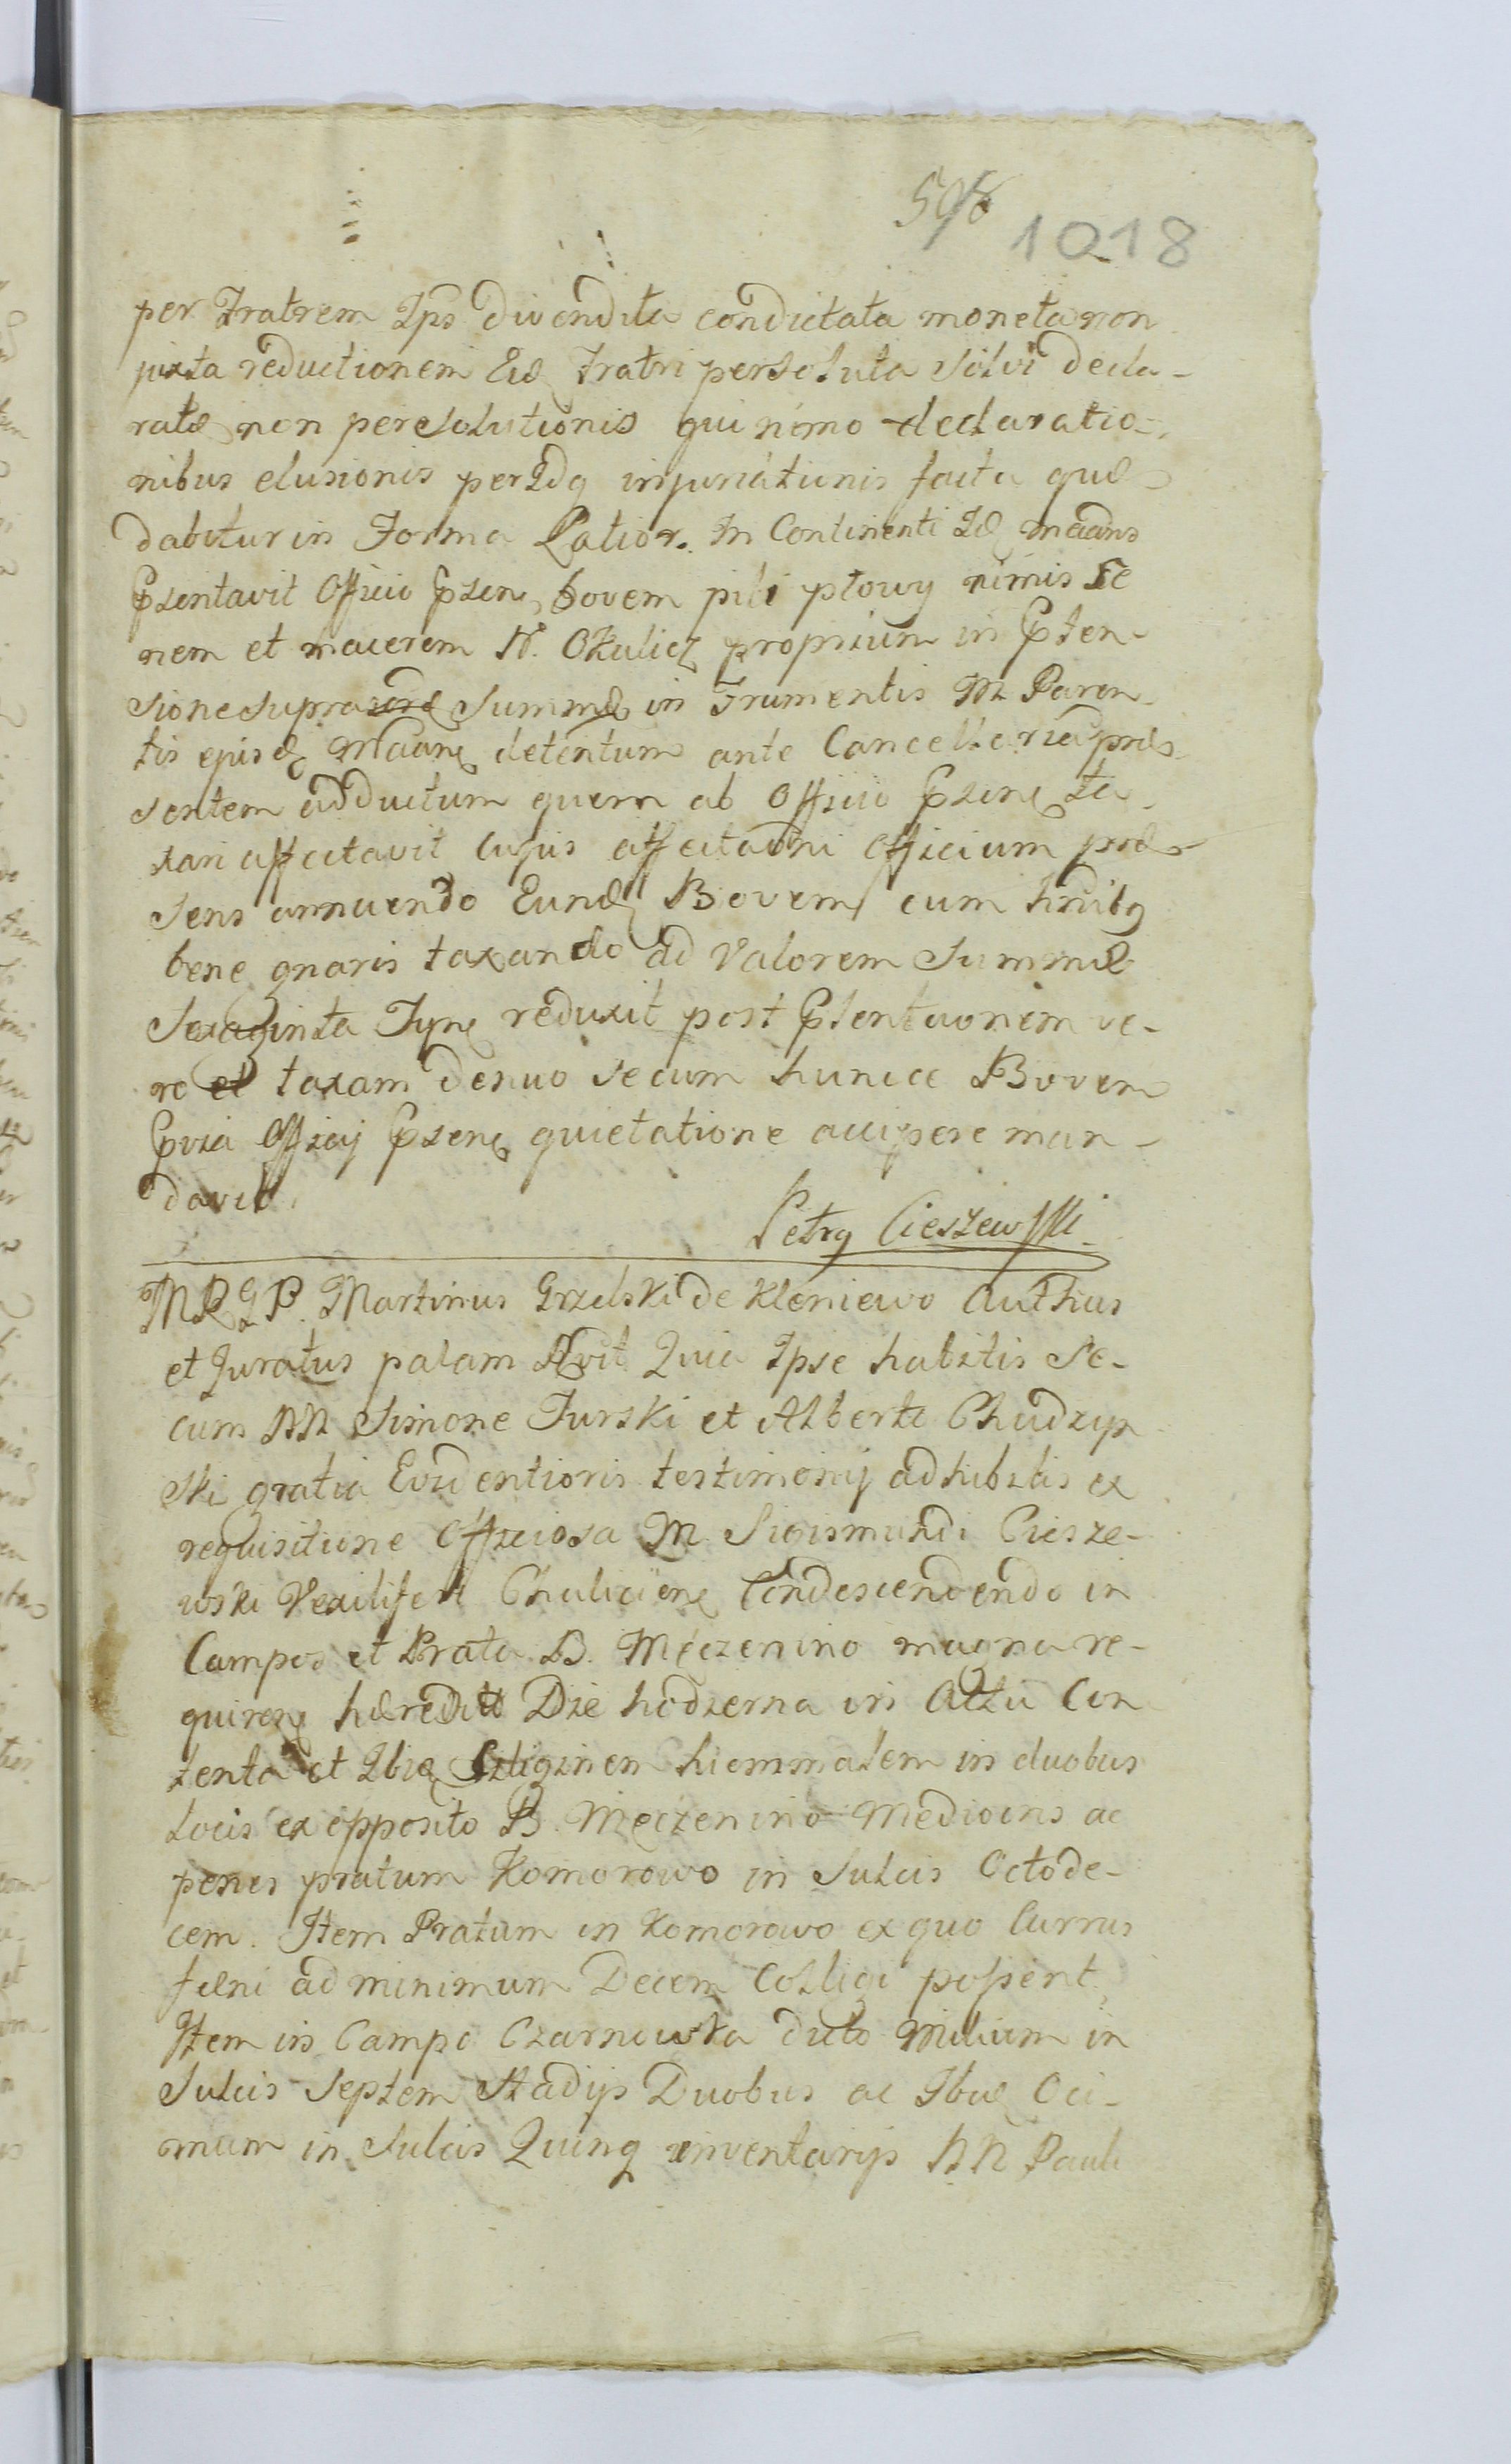 598
1018
per Fratrem Ips divendita condictata moneta non
juxta reductionem Eid Fratri persoluta Solvi decla-
ratae non persolutionis quinimo declaratio-
nibus elusionis per Idq injuriationis facta quae
dabitur in Forma Latior. In Continenti Id maans
Pszentavit Officio Pszens bovem pili płowy nimis Se
nem et macerem N. Okulicz proprium in Pten-
sione Supra Summae in Frumentis M Paren-
tis ejusd Maans detentum ante Cancellariam prae-
sentem adductum quem ab Officio Pszene ta-
xari affectavit cujus affectaoni Officium prae-
sens annuendo Eund Bovem cum hnoibq
bene gnaris taxando ad Valorem Summae
Sexaginta Tyne reduxit post Psentaonem ve-
ro et taxam denuo secum hunce Bovem
Pvia Officij Pszens quietatione accipere man-
davit.
Petrq Cieszewski
MRGP. Martinus Grzelski de Kleniewo Authus
et Juratus palam Rvit Quia Ipse habitis Se-
cum NN Simone Turski et Alberto Chudzyn
ski gratia Evidentioris testimonij adhibitis ex
requisitione Officiosa M Sigismundi Ciesze-
wski Vexiliferi Condescendendo in
Campos et Prata B. Męczenino magna re-
quirens haeredit Die hodierna in Actu Con
tenta et Ibiq Siliginem hiemmalem in duobus
Locis ex opposito B. Męczenino Mediocris ac
penes pratum Komorowo in Sulcis Octode-
cem. Item Pratum in Komorowo ex quo Currus
faeni ad minimum Decem Colligi possent
Item in Campo Czarnowka dicto Milium in
Sulcis Septem Stadijs Duobus ac Ibid Oci-
mum in Sulcis Quinq inventarijs NN Pauli